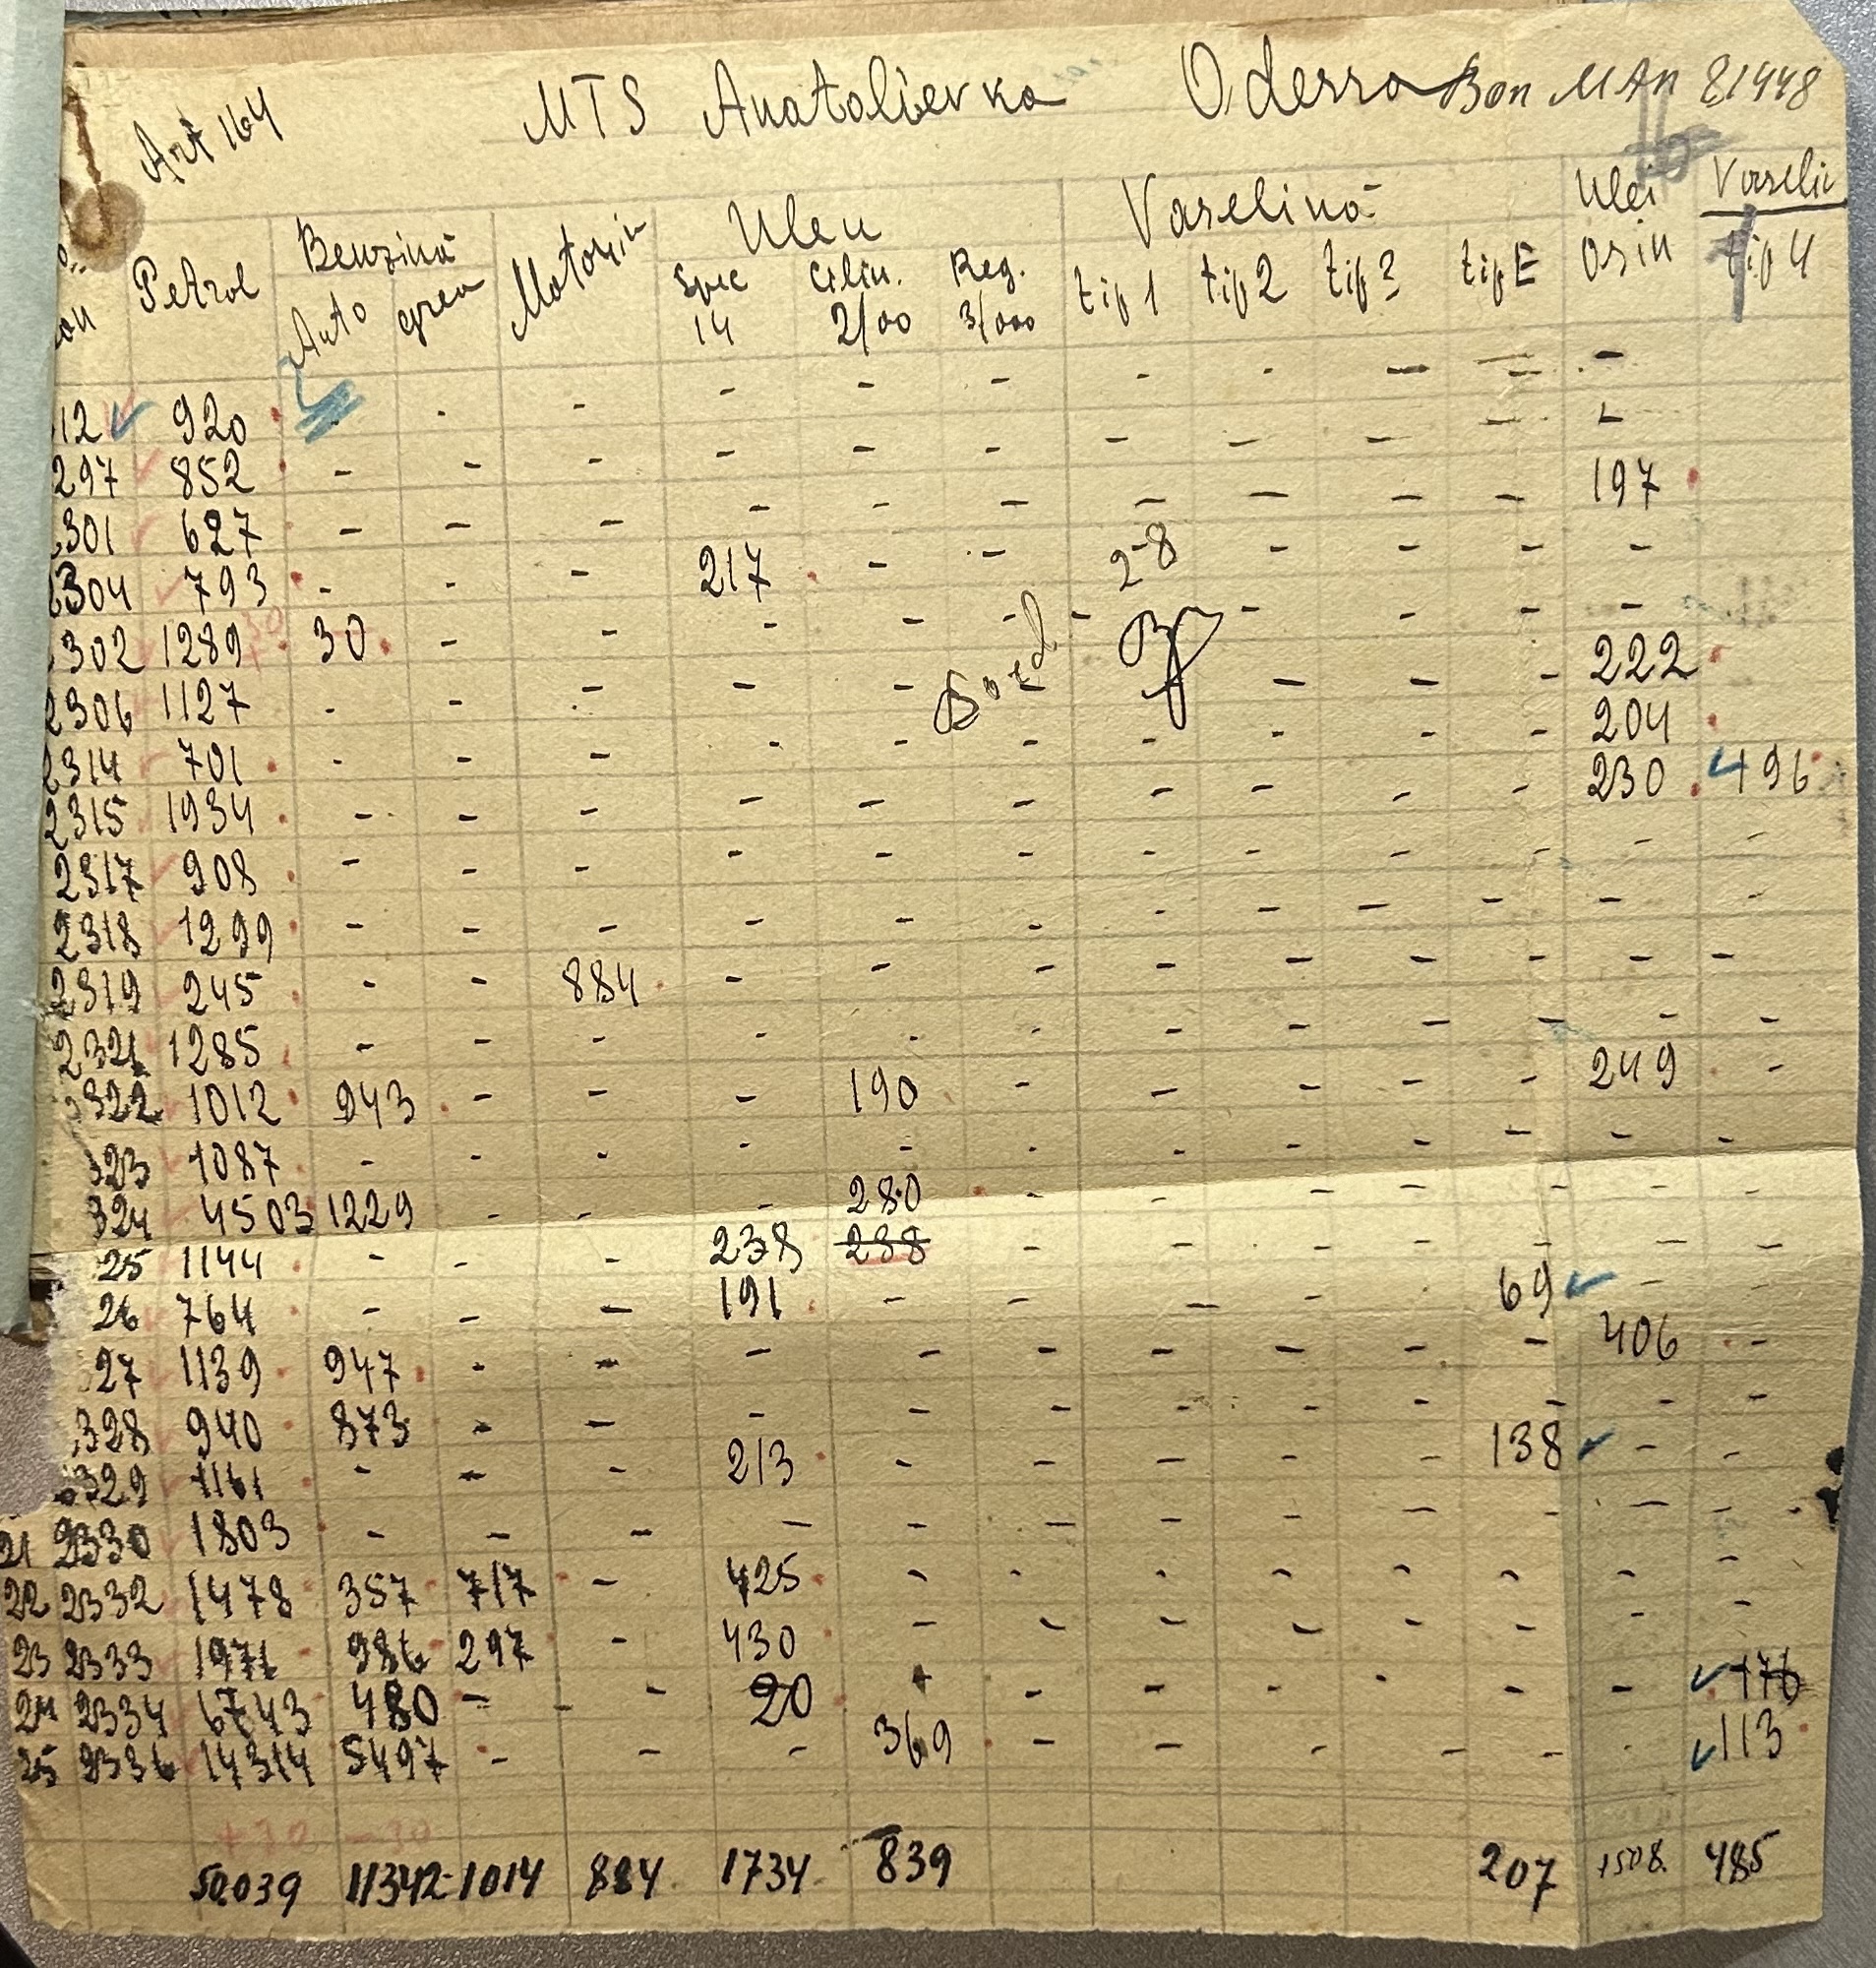 Art 164 MTS Anatolievka Odessa Bon MAN 81448
Petrol Benzină Auto grea Motorin Uleu Spec 14 Cilin. 2/00 Reg. 3/000 Vaselină tip 1 tip 2 tip 3 tip E Ulei Osin Vaselin tip 4
12 920 - - - - - - - - - -
297 852 - - - - - - - - - - -
301 627 - - - - - - - - - - 197
304 793 - - - 217 - - 2-8 - - - -
302 1289 30 - - - - - - - - - -
2306 1127 - - - - - - - - - 222
2314 701 - - - - - - - - - - 204
2315 1934 - - - - - - - - - - 230 496
2317 908 - - - - - - - - - - - -
2318 1299 - - - - - - - - - - - -
2319 245 - - 884 - - - - - - - - -
2321 1285 - - - - - - - - - - - -
322 1012 943 - - - 190 - - - - - 249 -
323 1087 - - - - - - - - - - - -
324 4503 1229 - - - 280 - - - - - - -
25 1144 - - - 238 238 - - - - - - -
26 764 - - - 191 - - - - 69 -
27 1139 947 - - - - - - - - - 406 -
328 940 873 - - - - - - - - - - -
329 1161 - - - 213 - - - - - 138 - -
21 2330 1803 - - - - - - - - - - - -
22 2332 1478 357 717 - 425 - - - - - - - -
23 2333 1971 986 297 - 430 - - - - - - - -
24 2334 6743 480 - - - 20 - - - - - - 176
25 2336 14314 5497 - - - 369 - - - - - - 113
+30 -30
50039 11342 1014 884 1734 839 207 1508 485